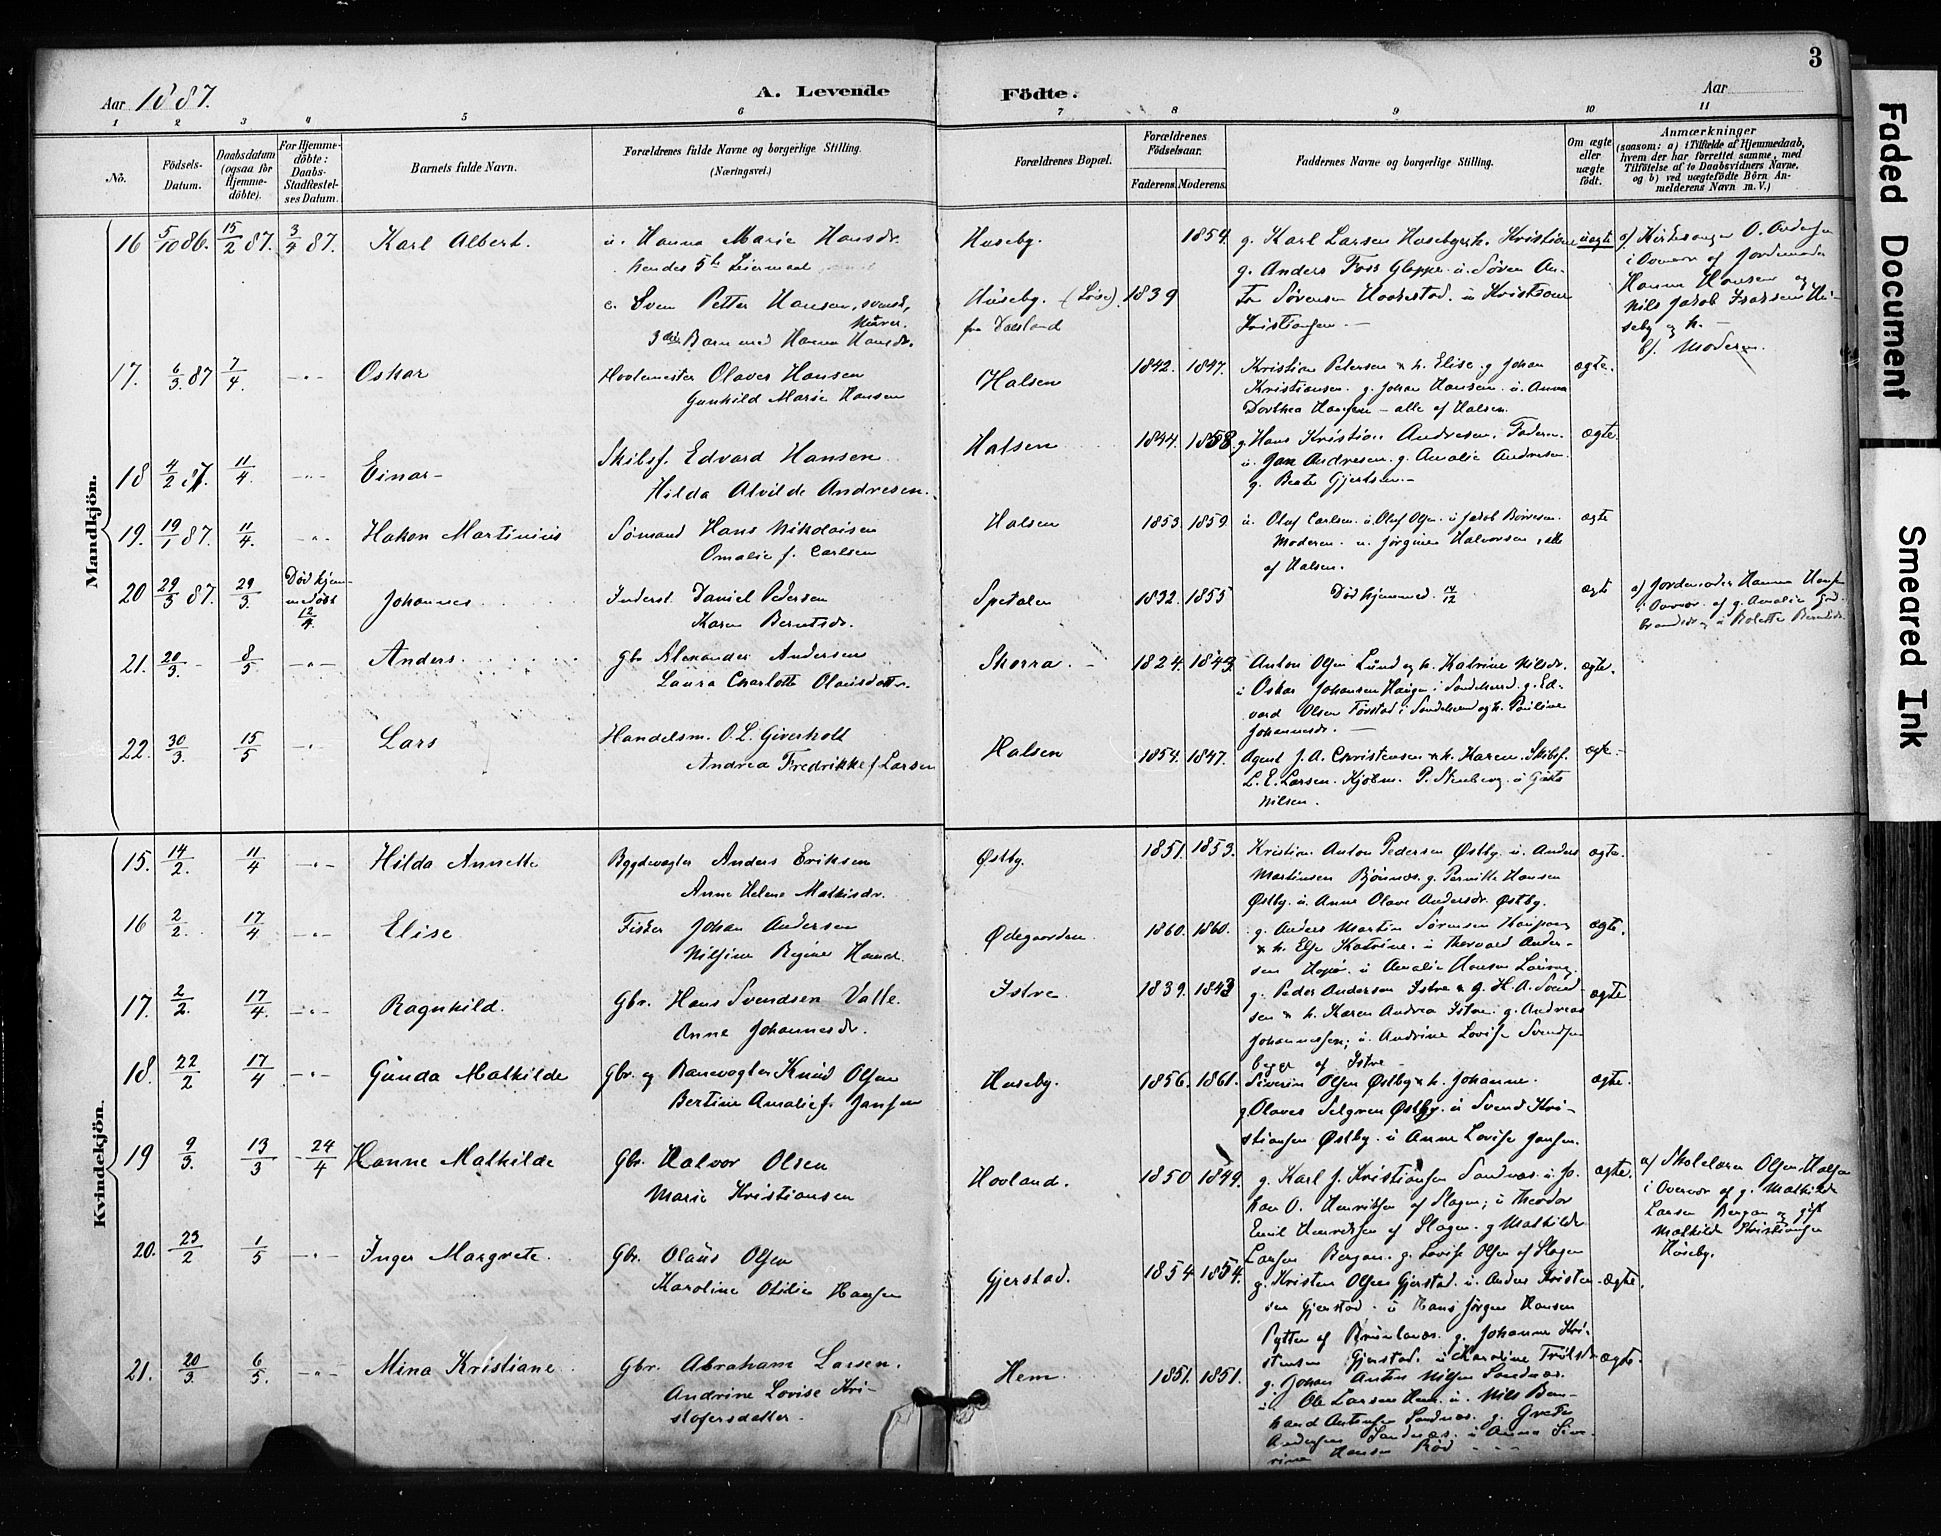 3
Aar 1887.
A. Levende Födte.
Aar
1 2 3 4 5 6 7 8 9 10 11
No.
Födsels-Datum.
Daabsdatum (ogsaa for Hjemme-döbte).
For Hjemme-döbte: Daabs-Stadfæstel-ses Datum.
Barnets fulde Navn.
Forældrenes fulde Navne og borgerlige Stilling.
(Næringsvei.)
Forældrenes Bopæl.
Forældrenes Födselsaar.
Faderens. Moderens.
Faddernes Navne og borgerlige Stilling.
Om ægte eller uægte födt.
Anmærkninger
(saasom: a) i Tilfælde af Hjemmedaab, hvem der har forrettet samme, med Tilföielse af to Daabsvidners Navne, og b) ved uægtefödte Börn An-melderens Navn m. V.)
Mandkjön.
16 5/10 86. 15/2 87. 3/4 87. Karl Albert.
u. Hanna Marie Hansdr.
hendes 5te Leiermaal
e. Sven Petter Hansen, svensk,
Murer.
3die Barn med Hanna Hansdr.
Huseby.
Huseby. (Løse).
fra Dalsland
1839 1854.
g. Karl Larsen Huseby & h. Kristiane
g. Anders Foss Gloppe. u. Søren An-
ton Sørensen Hovlestad. u. Kristiane
Kristiansen. —
uægte
a) Kirkesanger O. Andersen
i Overvær af Jordemoder
Hanna Hansen og
Nils Jakob Isaksen Hu-
seby og h. —
b). Moderen.
17. 6/3 87 7/4 — „ — Oskar
Hovlemester Olaves Hansen
Gunhild Marie Hansen
Halsen
1842. 1847.
Kristian Petersen & h. Elise. g Johan
Kristiansen. g. Johan Hansen. u. Anna
Dorthea Hansen — alle af Halsen.
ægte.
18 4/2 87. 11/4. — „ — Einar —
Skibsf. Edvard Hansen
Hilda Alvilde Andresen.
Halsen
1844. 1858.
g. Hans Kristian Andresen. Faderen.
u. Jan Andresen. g. Amalie Andresen.
g. Beate Gjertsen. —
ægte
19. 19/1 87. 11/4. — „ — Hakon Martinius
Sømand Hans Nikolaisen
Omalie f. Carlsen
Halsen
1853. 1859.
u. Oluf Carlsen. u. Oluf Olsen. u Jakob Børresen.
Moderen. u. Jørgine Halvorsen, alle
af Halsen.
ægte
20 29/3 87. 29/3. Død hjem-
medøbt
2/4. Johannes
Inderst. Daniel Pedersen
Karen Berntsdr.
Spetalen
1832. 1855
Død hjemmed.
ægte
a) Jordemoder Hanna Hansen
i Overvær. af g. Amalie
21. 20/3. — 8/5 — „ — Anders.
Gbr Alexander Andersen
Laura Charlotte Olausdatter.
Skorra. —
1824. 1843.
Anton Olsen Lund og h. Katrine Nilsdr.
u Oskar Johansen Haugen i Sandeherred. g. Ed-
vard Olsen Førstad i Sandeherred og h. Pauline
Johannesdr. —
ægte.
22. 30/3. 15/5 — „ — Lars
Handelsm. O. L. Giverholt
Andrea Fredrikke f Larsen
Halsen
1854. 1847.
Agent J. A. Christensen & h. Karen. Skibsf.
L. E. Larsen. Kjøbm. P. Stenberg. u
Nilsen.
ægte. —
Kvindekjön.
15. 14/2. 11/4 — „ — Hilda Annette
Bygdevægter Anders Eriksen
Anne Helene Mathisdr.
Østby.
1851. 1853.
Kristian Anton Pedersen Østby. u. Anders
Martinsen Bjønnes. g. Pernille Hansen
Østby. u Anne Olave Andersdr Østby.
ægte.
16 2/2. 17/4 — „ — Elise.
Fisker Johan Andersen
Nilsine Regine Hansd.
Ødegaarden.
1860. 1860.
g. Anders Martin Sørensen
& h. Else Katrine. u Thorvald Ander-
sen u Amalie Hansen
ægte.
17. 2/2. 17/4. — „ — Ragnhild.
Gbr. Hans Svendsen Valle.
Anne Johannesdr.
Istre
1839. 1843
g. Peder Andersen Istre & g. H. A. Svend-
sen & h. Karen Andrea Istre. g. Andreas
Johannessen; u. Andrine Lovise Svendsen
begge af Istre —
ægte
18. 22/2 17/4 — „ — Gunda Mathilde
Gbr. og Banevogter Knud Olsen
Bertine Amalie f. Jansen
Huseby.
1856. 1861.
Severin Olsen Østby & h. Johanne.
g Olaves Selgren Østby. u Svend Kri-
stiansen Østby. u Anne Lovise Jansen.
ægte.
19 9/3. 13/3 24/4 Hanne Mathilde
Gbr. Halvor Olsen
Marie Kristiansen
Hovland.
1850 1849.
g. Karl J. Kristiansen Sandnæs. u Jo-
han O. Henriksen af Slagen; u Theodor
Emil Henriksen af Slagen. g Mathilde
Larsen Bergan. g. Lovise Olsen af Slagen
ægte.
a) Skolelærer Olsen Halsen
i Overvær af g. Mathilde
Larsen Bergan og gift
Mathilde Kristiansen
Huseby.
20. 23/2 1/5 — „ — Inger Margrete.
Gbr. Olaus Olsen
Karoline Otilie Hansen
Gjerstad.
1854 1854.
g. Kristen Olsen Gjerstad. u. Anders Kristen-
sen Gjerstad. u Hans Jørgen Hansen
Pytten af Brunlanæs. g. Johanne Kri-
stensen Gjerstad. u Karoline
ægte.
21. 20/3 6/5. — „ — Mina Kristiane
Gbr. Abraham Larsen.
Andrine Lovise Kri-
stofersdatter.
Hem.
1851. 1851.
g. Johan Anton Nilsen Sandnæs.
u. Ole Larsen Hem. u. Nils Bern-
hard Antonsen Sandnæs. g. Grete
Andersen Sandnæs. u Anna Seve-
rine Hansen Rød — — —
ægte.
Faded Document
Smeared Ink